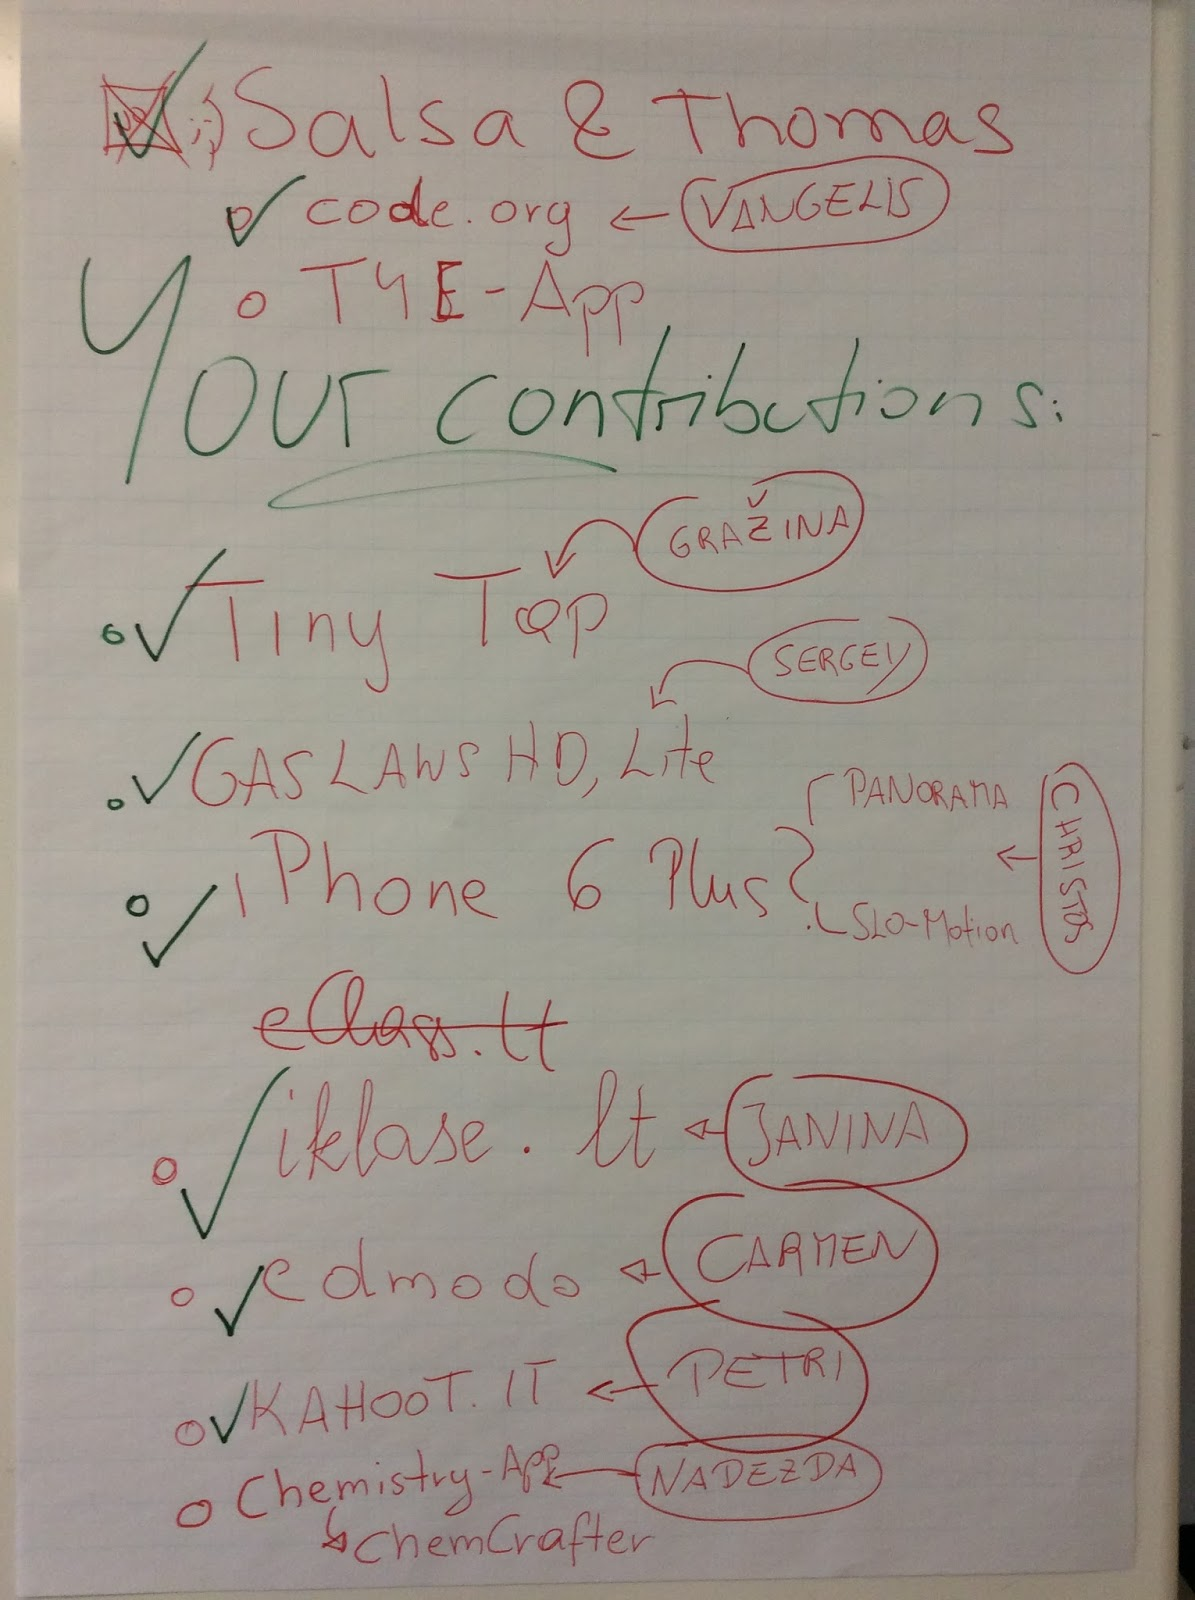 ;-) Salsa & Thomas
code.org ← VANGELIS
T4E-App
Your contributions:
GRAŽINA
Tiny Tap
SERGEY
GAS LAWS HD, Lite
PANORAMA
iPhone 6 Plus
CHRISTOS
SLO-Motion
eClass.lt
iklase.lt ← JANINA
edmodo ← CARMEN
KAHOOT.IT ← PETRI
Chemistry-App ← NADEZDA
↳ ChemCrafter